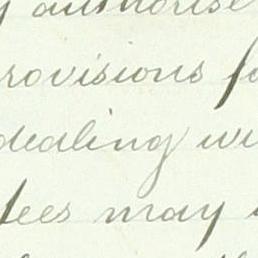 authorise
rovisions fo
dealing wi
fees may